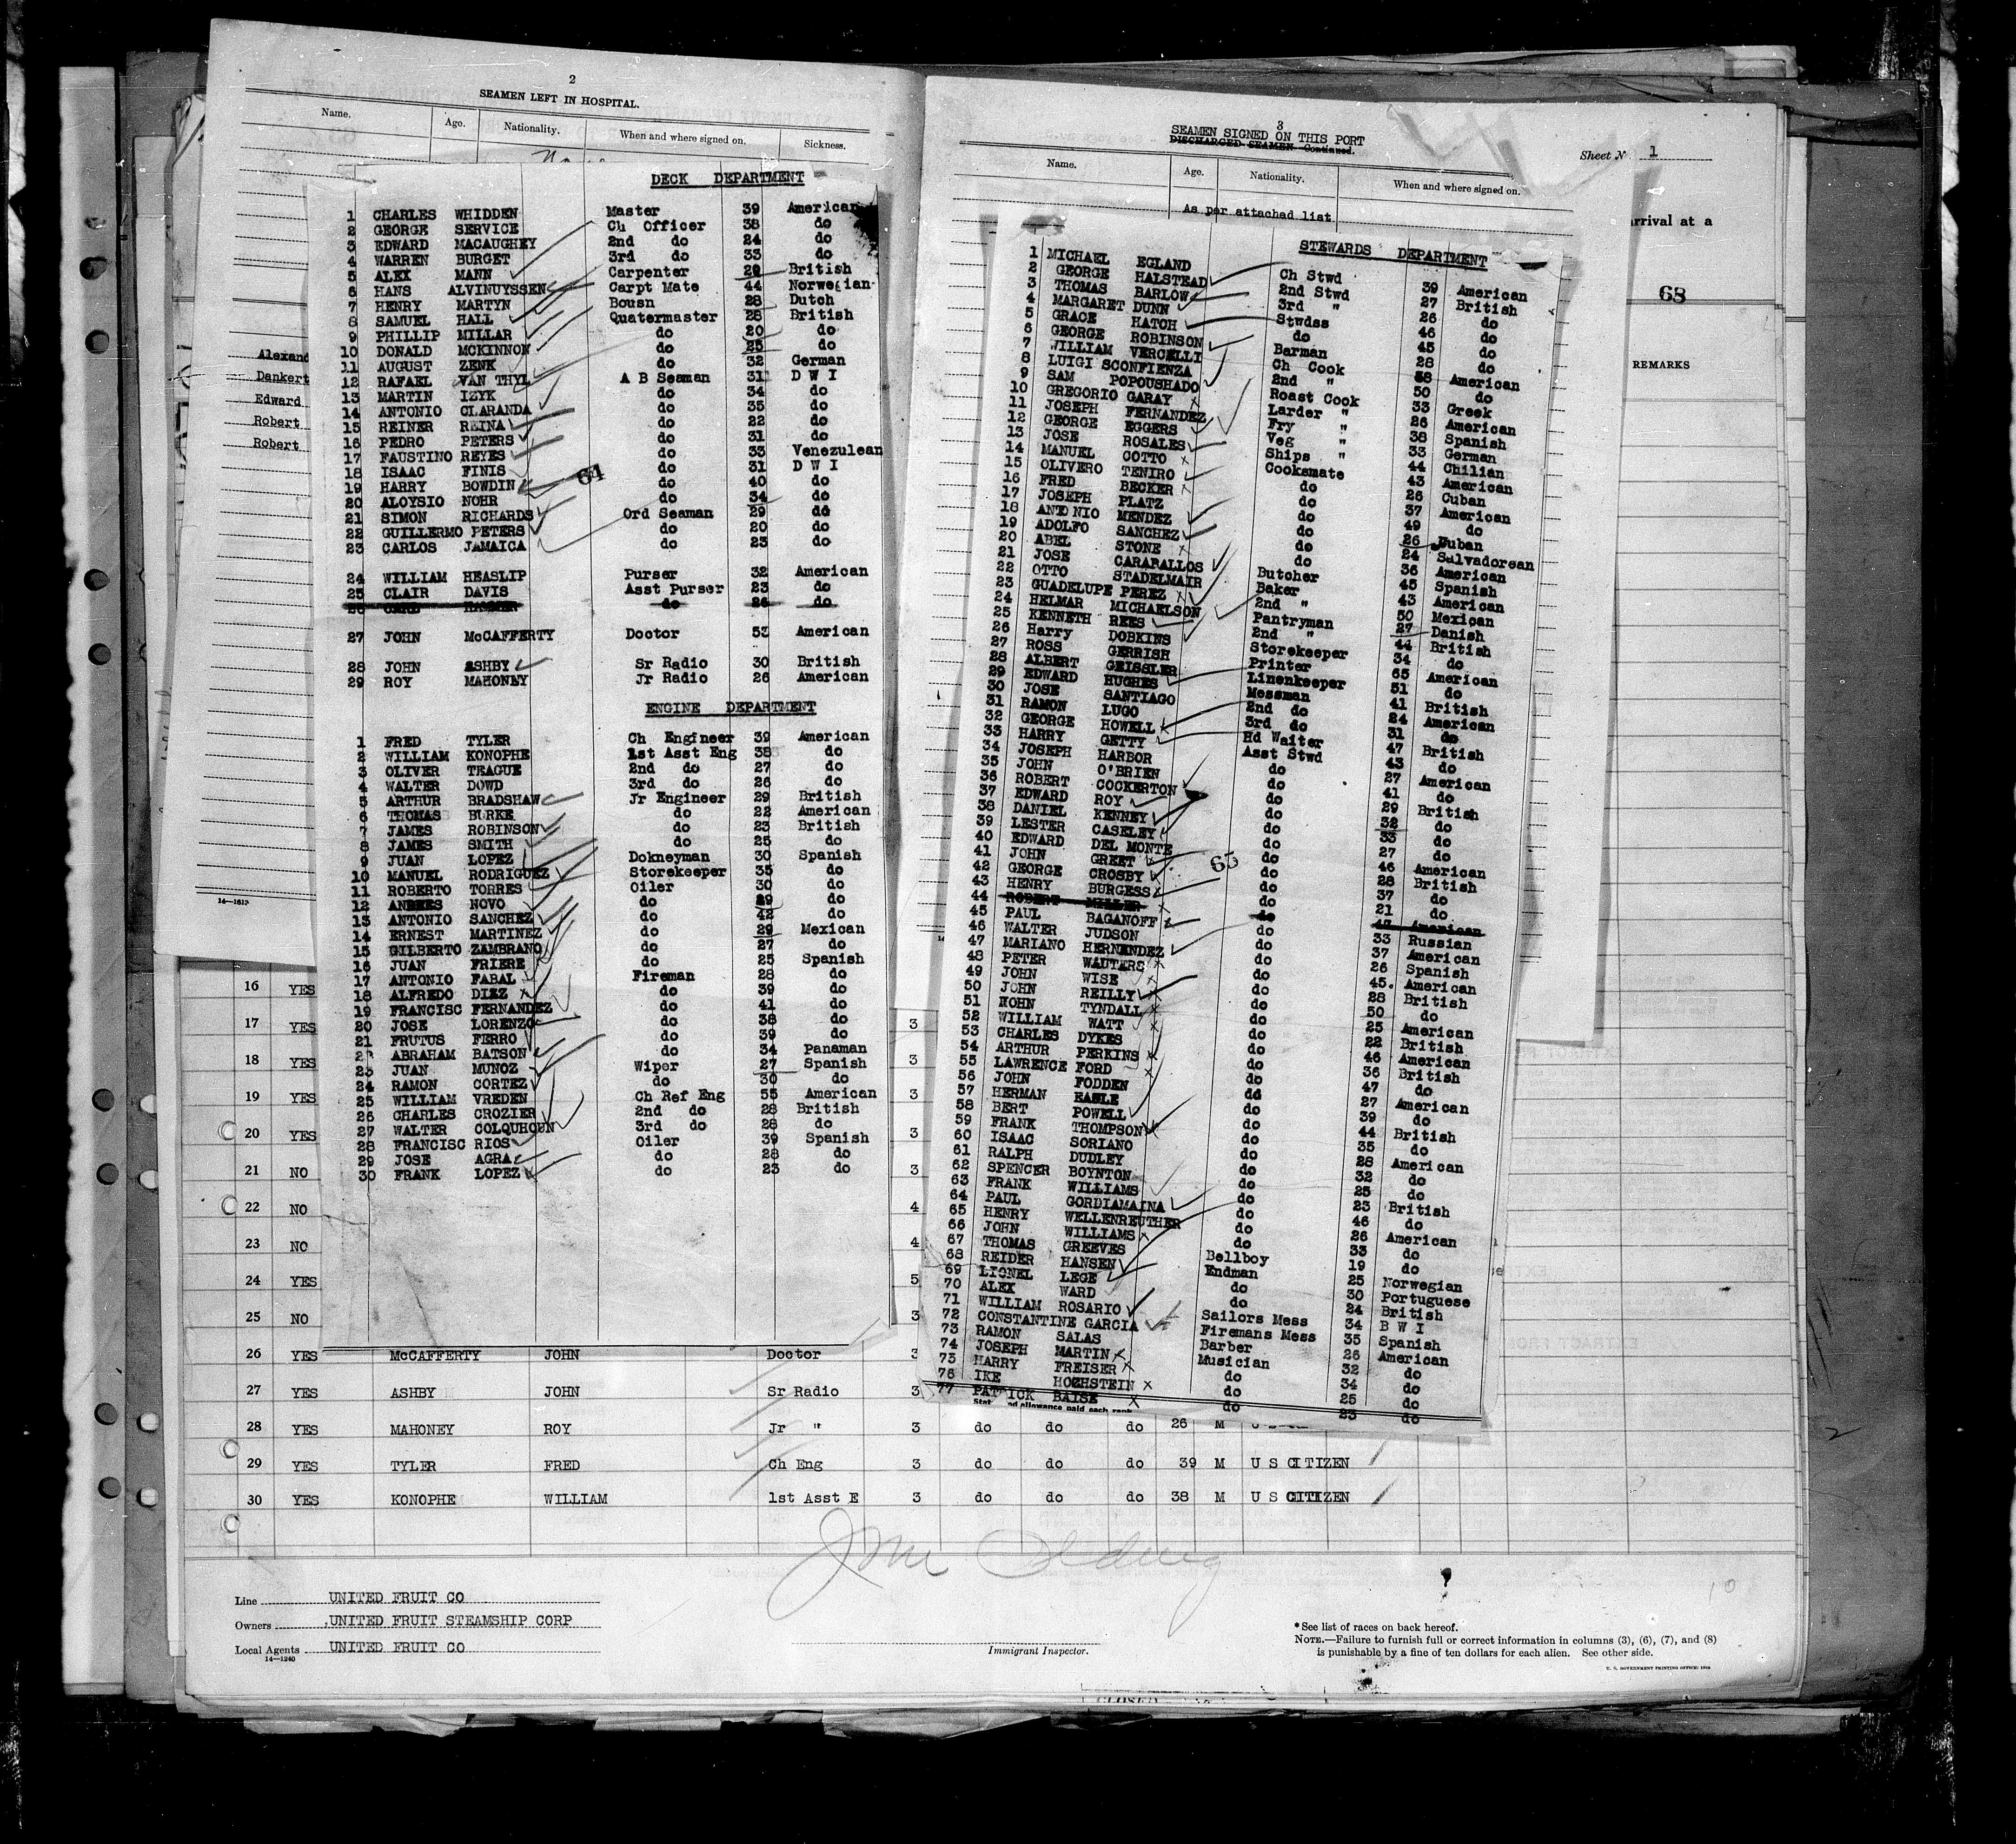 2
SEAMEN LEFT IN HOSPITAL.
Name. Age. Nationality. When and where signed on. Sickness.
DECK DEPARTMENT
1 CHARLES WHIDDEN Master 39 American
2 GEORGE SERVICE Ch Officer 38 do
3 EDWARD MACAUGHEY 2nd do 24 do
4 WARREN BURGET 3rd do 33 do
5 ALEX MANN Carpenter 29 British
6 HANS ALVINUYSSEN Carpt Mate 44 Norwegian
7 HENRY MARTYN Bousn 28 Dutch
8 SAMUEL HALL Quatermaster 28 British
9 PHILLIP MILLAR do 20 do
10 DONALD MCKINNON do 25 do
11 AUGUST ZENK do 32 German
12 RAFAEL VAN THYL A B Seaman 31 D W I
13 MARTIN IZYK do 34 do
14 ANTONIO CLARANDA do 35 do
15 REINER REINA do 22 do
16 PEDRO PETERS do 31 do
17 FAUSTINO REYES do 33 Venezulean
18 ISAAC FINIS do 31 D W I
19 HARRY BOWDIN do 40 do
20 ALOYSIO NOHR do 34 do
21 SIMON RICHARDS Ord Seaman 29 do
22 GUILLERMO PETERS do 20 do
23 CARLOS JAMAICA do 23 do
64
24 WILLIAM HEASLIP Purser 32 American
25 CLAIR DAVIS Asst Purser 23 do
26 do 26 do
27 JOHN McCAFFERTY Doctor 53 American
28 JOHN ASHBY Sr Radio 30 British
29 ROY MAHONEY Jr Radio 26 American
ENGINE DEPARTMENT
1 FRED TYLER Ch Engineer 39 American
2 WILLIAM KONOPHE 1st Asst Eng 38 do
3 OLIVER TEAGUE 2nd do 27 do
4 WALTER DOWD 3rd do 26 do
5 ARTHUR BRADSHAW Jr Engineer 29 British
6 THOMAS BURKE do 22 American
7 JAMES ROBINSON do 23 British
8 JAMES SMITH do 25 do
9 JUAN LOPEZ Dokneyman 30 Spanish
10 MANUEL RODRIGUEZ Storekeeper 35 do
11 ROBERTO TORRES Oiler 30 do
12 ANDRES NOVO do 29 do
13 ANTONIO SANCHEZ do 42 do
14 ERNEST MARTINEZ do 29 Mexican
15 GILBERTO ZAMBRANO do 27 do
16 JUAN FRIERE do 25 Spanish
17 ANTONIO FABAL Fireman 28 do
18 ALFREDO DIEZ do 39 do
19 FRANCISC FERNANDEZ do 41 do
20 JOSE LORENZO do 38 do
21 FRUTUS FERRO do 39 do
ABRAHAM BATSON do 34 Panaman
23 JUAN MUNOZ Wiper 27 Spanish
24 RAMON CORTEZ do 30 do
25 WILLIAM VREDEN Ch Ref Eng 55 American
26 CHARLES CROZIER 2nd do 28 British
27 WALTER COLQUHOUN 3rd do 28 do
28 FRANCISC RIOS Oiler 39 Spanish
29 JOSE AGRA do 28 do
30 FRANK LOPEZ do 23 do
Alexand
Dankert
Edward
Robert
Robert
3
SEAMEN SIGNED ON THIS PORT
DISCHARGED SEAMEN—Continued.
Sheet N 1
Name. Age. Nationality. When and where signed on.
As per attached list
STEWARDS DEPARTMENT
1 MICHAEL EGLAND Ch Stwd 39 American
2 GEORGE HALSTEAD 2nd Stwd 27 British
3 THOMAS BARLOW 3rd " 26 do
4 MARGARET DUNN Stwdss 46 do
5 GRACE HATCH do 45 do
6 GEORGE ROBINSON Barman 28 do
7 WILLIAM VERCELLI Ch Cook 38 American
8 LUIGI SCONFIENZA 2nd " 50 do
9 SAM POPOUSHADO Roast Cook 33 Greek
10 GREGORIO GARAY Larder " 26 American
11 JOSEPH FERNANDEZ Fry " 38 Spanish
12 GEORGE EGGERS Veg " 33 German
13 JOSE ROSALES Ships " 44 Chilian
14 MANUEL COTTO Cooksmate 43 American
15 OLIVERO TENIRO do 26 Cuban
16 FRED BECKER do 37 American
17 JOSEPH PLATZ do 49 do
18 ANTONIO MENDEZ do 26 Cuban
19 ADOLFO SANCHEZ do 24 Salvadorean
20 ABEL STONE do 36 American
21 JOSE CARABALLOS Butcher 45 Spanish
22 OTTO STADELMAIR Baker 43 American
23 GUADELUPE PEREZ 2nd " 50 Mexican
24 HELMAR MICHAELSON Pantryman 27 Danish
25 KENNETH REES 2nd " 44 British
26 Harry DOBKINS Storekeeper 34 do
27 ROSS GERRISH Printer 65 American
28 ALBERT GEISSLER Linenkeeper 51 do
29 EDWARD HUGHES Messman 41 British
30 JOSE SANTIAGO 2nd do 24 American
31 RAMON LUGO 3rd do 31 do
32 GEORGE HOWELL Hd Waiter 47 British
33 HARRY GETTY Asst Stwd 43 do
34 JOSEPH HARBOR do 27 American
35 JOHN O'BRIEN do 41 do
36 ROBERT COCKERTON do 29 British
37 EDWARD ROY do 32 do
38 DANIEL KENNEY do 33 do
39 LESTER CASELEY do 27 do
40 EDWARD DEL MONTE do 46 American
41 JOHN GREET do 28 British
42 GEORGE CROSBY do 37 do
43 HENRY BURGESS do 21 do
44 ROBERT MILLER do 47 American
45 PAUL BAGANOFF do 33 Russian
46 WALTER JUDSON do 37 American
47 MARIANO HERNENDEZ do 26 Spanish
48 PETER WAUTERS do 45. American
49 JOHN WISE do 28 British
50 JOHN REILLY do 50 do
51 HOHN TYNDALL do 25 American
52 WILLIAM WATT do 22 British
53 CHARLES DYKES do 46 American
54 ARTHUR PERKINS do 36 British
55 LAWRENCE FORD do 47 do
56 JOHN FODDEN do 27 American
57 HERMAN EAGLE do 39 do
58 BERT POWELL do 44 British
59 FRANK THOMPSON do 35 do
60 ISAAC SORIANO do 28 American
61 RALPH DUDLEY do 32 do
62 SPENCER BOYNTON do 25 do
63 FRANK WILLIAMS do 23 British
64 PAUL GORDIAMAINA do 46 do
65 HENRY WELLENREUTHER do 26 American
66 JOHN WILLIAMS do 33 do
67 THOMAS GREEVES Bellboy 19 do
68 REIDER HANSEN Endman 25 Norwegian
69 LIONEL LEGE do 30 Portuguese
70 ALEX WARD do 24 British
71 WILLIAM ROSARIO Sailors Mess 34 B W I
72 CONSTANTINE GARCIA Firemans Mess 35 Spanish
73 RAMON SALAS Barber 26 American
74 JOSEPH MARTIN Musician 32 do
75 HARRY FREISER do 34 do
76 IKE HOCHSTEIN do 25 do
77 PATRICK BAISE do 23 do
65
rrival at a
68
REMARKS
16 YES
17 YES 3
18 YES 3
19 YES 3
20 YES 3
21 NO 3
22 NO 4
23 NO 4
24 YES 5
25 NO 3
26 YES McCAFFERTY JOHN Doctor 3
27 YES ASHBY JOHN Sr Radio 3
28 YES MAHONEY ROY Jr " 3 do do do 26 M
29 YES TYLER FRED Ch Eng 3 do do do 39 M U S CITIZEN
30 YES KONOPHE WILLIAM 1st Asst E 3 do do do 38 M U S CITIZEN
Line UNITED FRUIT CO
Owners UNITED FRUIT STEAMSHIP CORP
Local Agents UNITED FRUIT CO
14—1240
Immigrant Inspector.
10
* See list of races on back hereof.
NOTE.—Failure to furnish full or correct information in columns (3), (6), (7), and (8)
is punishable by a fine of ten dollars for each alien. See other side.